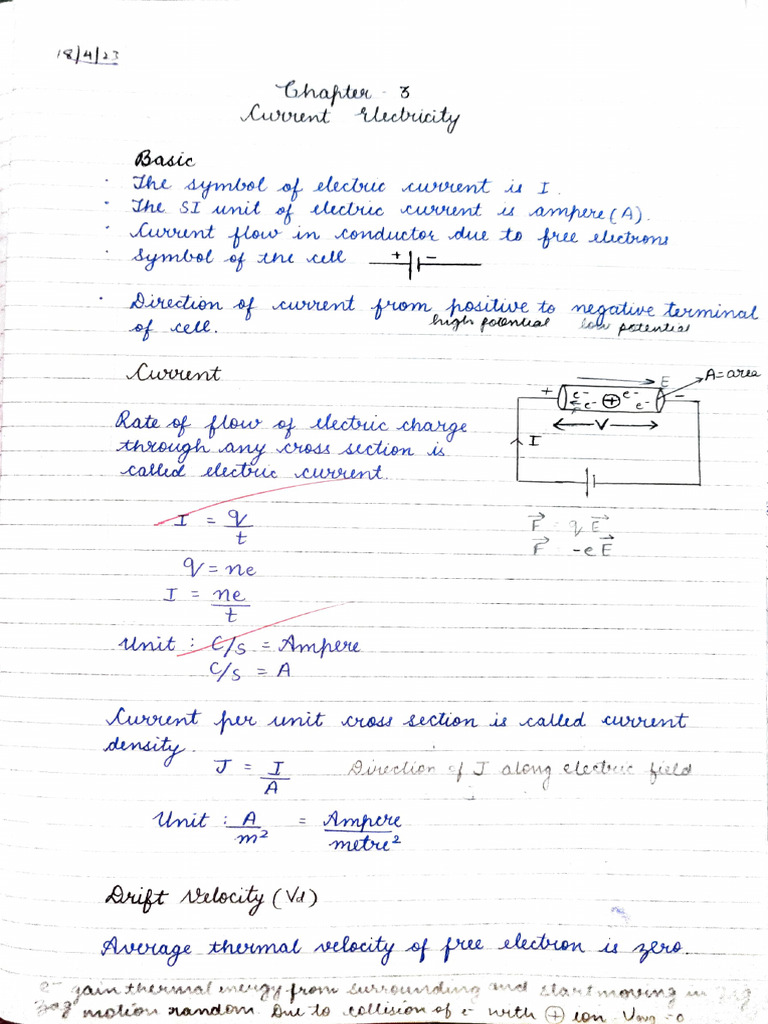 18/4/23
Chapter - 3
Current Electricity
Basic
· The symbol of electric current is I.
· The SI unit of electric current is ampere (A).
· Current flow in conductor due to free electrons
· Symbol of the cell + -
· Direction of current from positive to negative terminal
of cell. high potential low potential
Current
Rate of flow of electric charge
through any cross section is
called electric current.
E A = area
+ e- e- ⊕ e- e- -
V
I
F⃗ = qE⃗
F⃗ = -eE⃗
I = q/t
q = ne
I = ne/t
Unit : C/s = Ampere
C/s = A
Current per unit cross section is called current
density.
J = I/A Direction of J along electric field
Unit : A/m² = Ampere/metre²
Drift Velocity (Vd)
Average thermal velocity of free electron is zero.
e- gain thermal energy from surrounding and start moving in zig
zag motion random. Due to collision of e- with ⊕ ion Vavg = 0